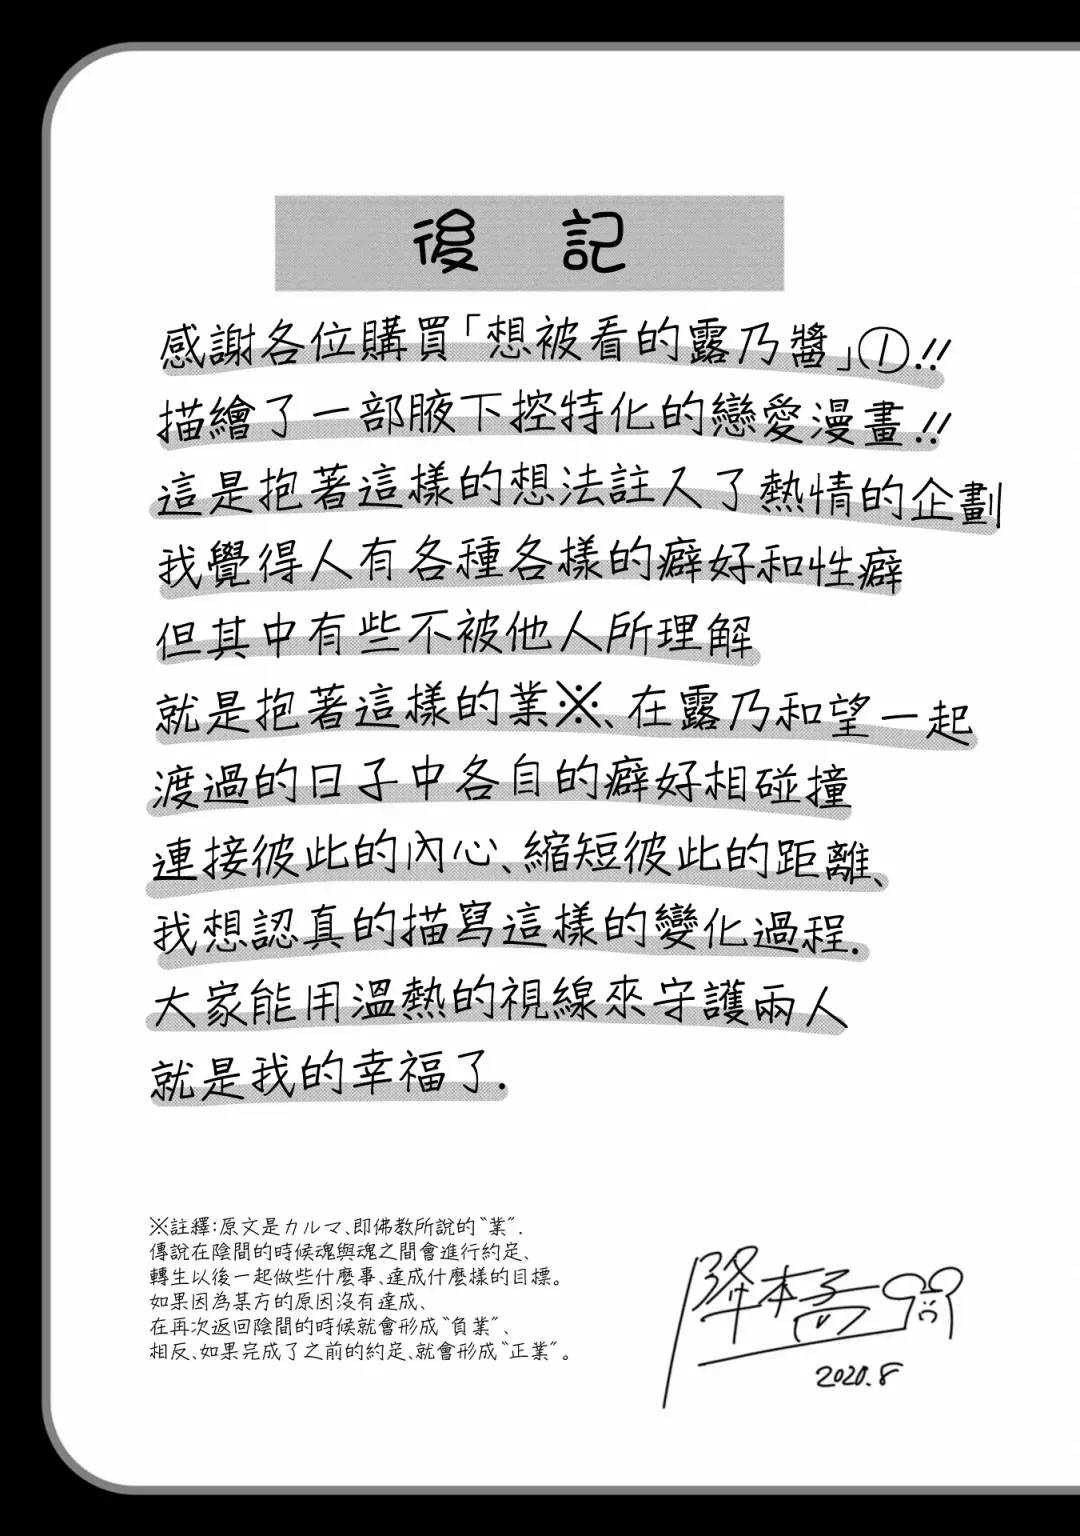 後 記
感謝各位購買「想被看的露乃醬」①!!
描繪了一部腋下控特化的戀愛漫畫!!
這是抱著這樣的想法註入了熱情的企劃
我覺得人有各種各樣的癖好和性癖
但其中有些不被他人所理解
就是抱著這樣的業※、在露乃和望一起
渡過的日子中各自的癖好相碰撞
連接彼此的內心、縮短彼此的距離、
我想認真的描寫這樣的變化過程.
大家能用溫熱的視線來守護兩人
就是我的幸福了.
※註釋:原文是カルマ、即佛教所說的“業”.
傳說在陰間的時候魂與魂之間會進行約定、
轉生以後一起做些什麼事、達成什麼樣的目標。
如果因為某方的原因沒有達成、
在再次返回陰間的時候就會形成“負業”、
相反、如果完成了之前的約定、就會形成“正業”。
2020.8